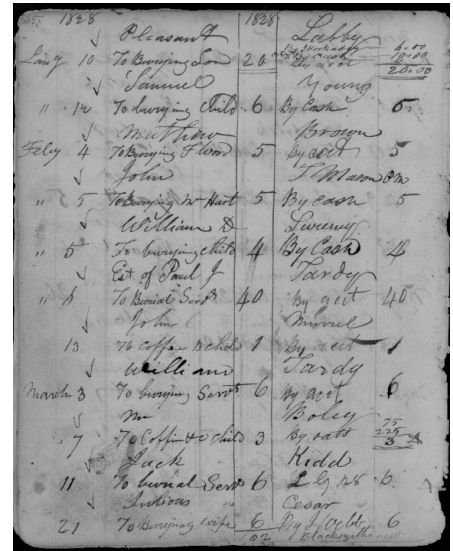 1828 1828
Pleasant Labby
Jany 10 To Burying Son 20 6.00
20.00
Samuel Young
" 12 To burying Child 6 By Cash 6
Mathew Brown
Feby 4 To Burying 5 By acct 5
John T Mason
" 5 To Burying Mr Hart 5 By Cash 5
William D
" 5 To burying child 4 By Cash 4
Est of Paul J Tardy
" 6 To Burial Servt 40 By acct 40
John Murrel
13 To Coffin B child 1 By acct 1
William Tardy
March 3 To burying Servt 6 By acct 6
Mr Boley
7 To Coffin & c child 3 By oats 75
225
3
Jack Kidd
11 To burial Servt 6 6
Julious Cesar
21 To Burying wife 6 By J 6
102 Blacksmith